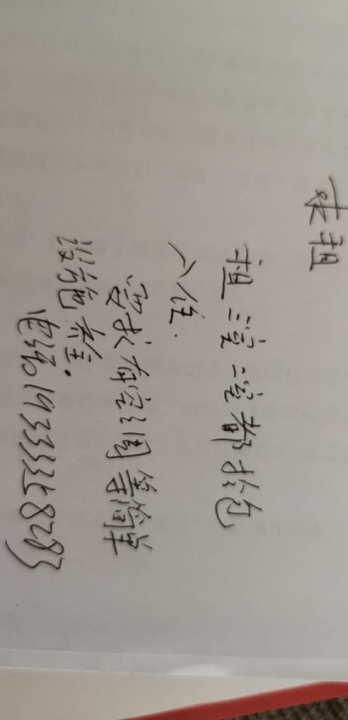 求租
租 二室都拎包
入住.
求有空调等简单
设施齐全.
电话19333358283